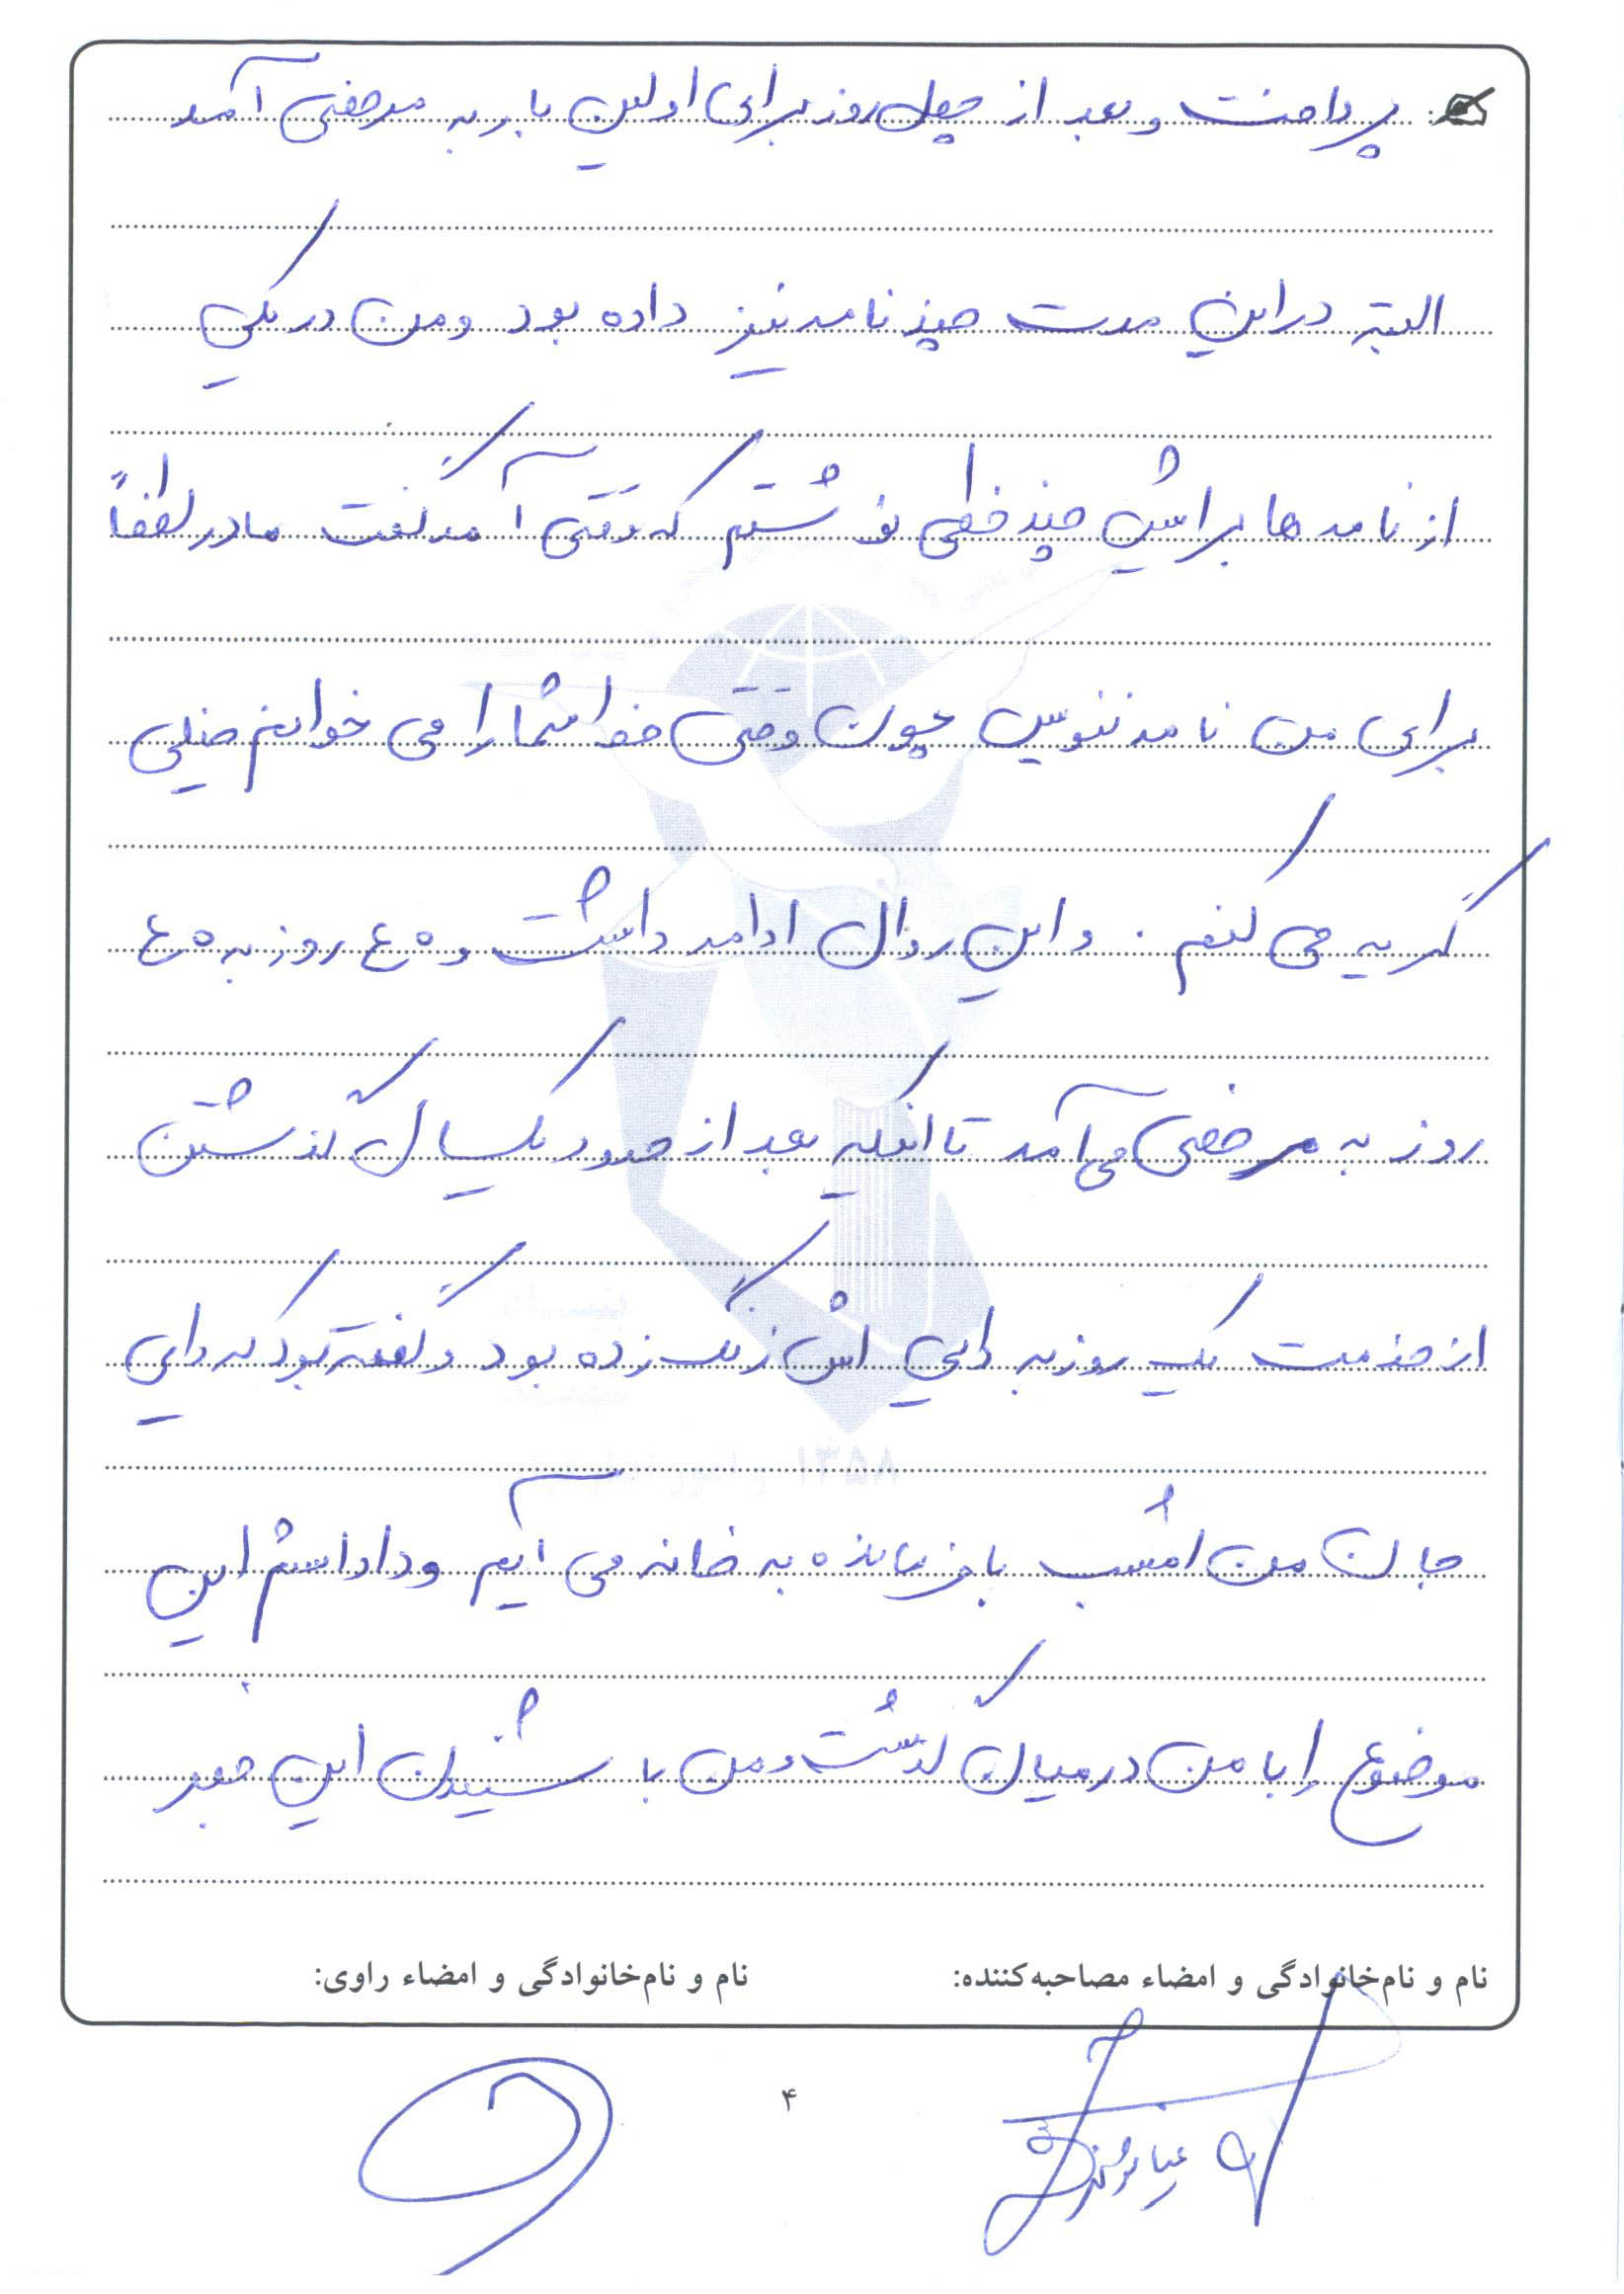 پرداخت و بعد از چهل روز برای اولین بار به مرخصی آمد
البته در این مدت چند نامه نیز داده بود و من در یکی
از نامه ها برایش چند خطی نوشتم که وقتی آمد گفت مادر لطفاً
برای من نامه ننویس چون وقتی خط شما را می خوانم خیلی
گریه می کنم . و این روال ادامه داشت و ۴۰ روز به ۴۰
روز به مرخصی می آمد تا اینکه بعد از حدود یکسال گذشتن
از خدمت یک روز به دایی اش زنگ زده بود و گفته بود که دایی
جان من امشب با فرمانده به خانه می آیم و داداشم این
موضوع را با من در میان گذشت و من با شنیدن این خبر
نام و نام‌خانوادگی و امضاء مصاحبه‌کننده:
نام و نام‌خانوادگی و امضاء راوی:
۴